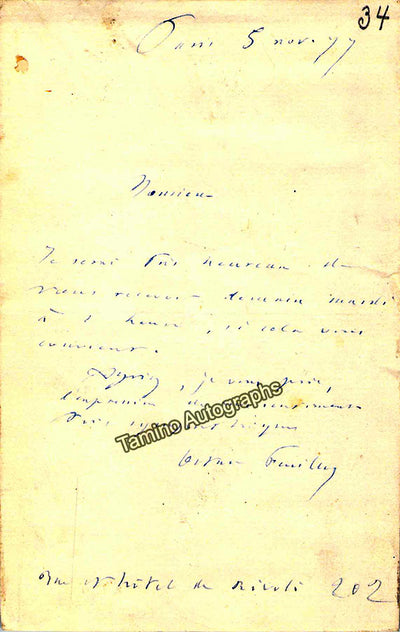 34
Paris 5 nov. 77
Monsieur
Je serai très heureux de
vous recevoir demain mardi
à 1 heure, si cela vous
convient.
Agréez, je vous prie,
l'expression de sentiments
très
Tamino Autographs
Octave Feuillet
Rue et hôtel de Rivoli 202